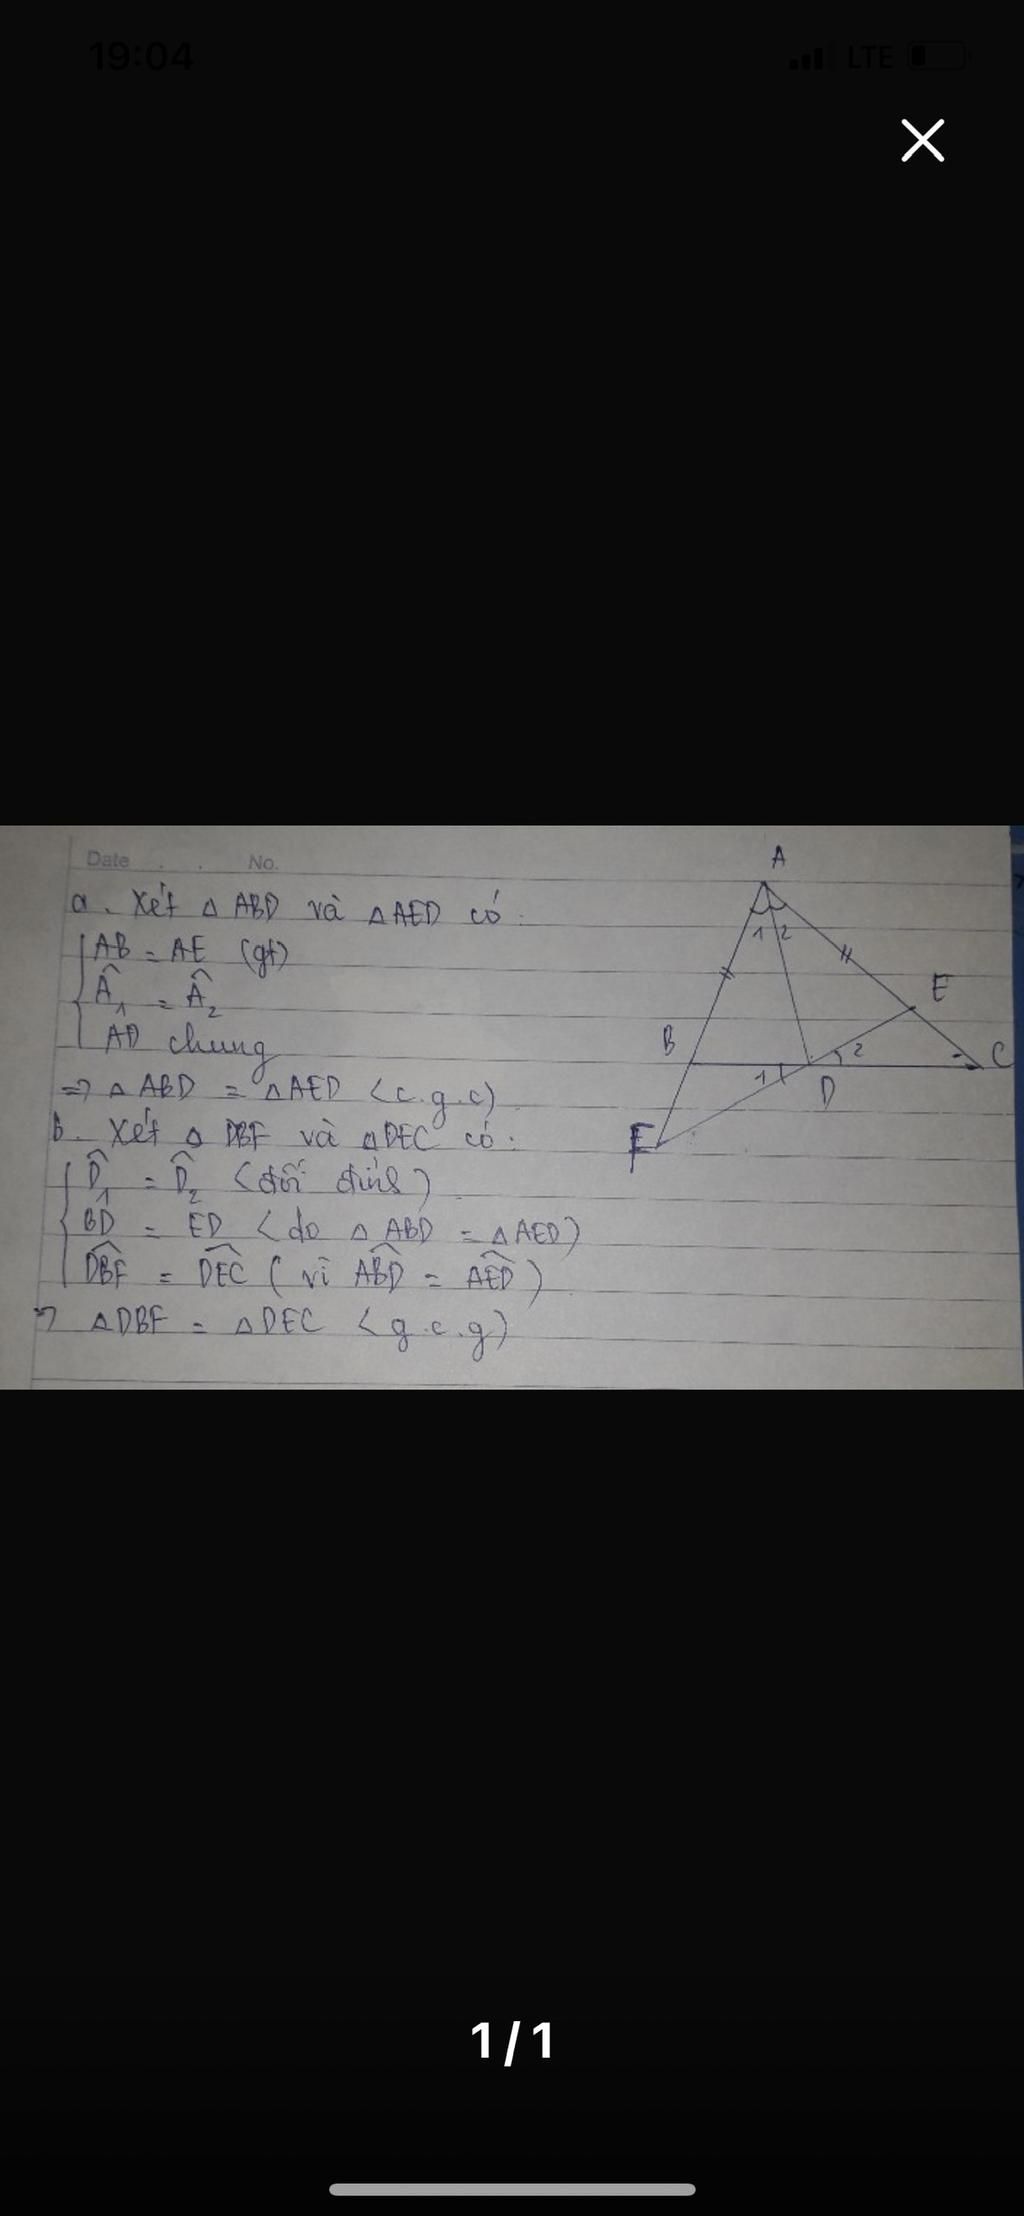 19:04
LTE
Date . . No.
a. Xét △ ABD và △AED có.
AB = AE (gt)
Â₁ = Â₂
AD chung
=> △ ABD = △AED <c.g.c)
b. Xét △ DBF và △DEC có:
D̂₁ = D̂₂ <đối đỉnh)
BD = ED <do △ ABD = △AED)
D̂BF = D̂EC ( vì ÂBD = ÂED )
=> △DBF = △DEC <g.c.g)
A
1 2
E
B
2
C
1
D
F
1/1